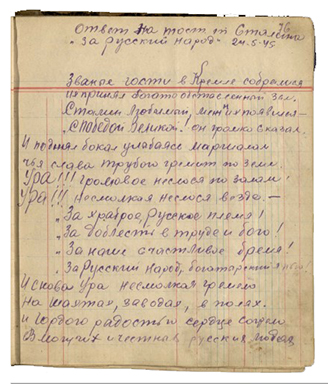 76
Ответ на тост т Сталина
"За русский народ" 24-5-45
Званые гости в Кремле собрались
Их принял богато отделанный зал.
Сталин любимый меж них появился—
"С победой Великой" он громко сказал.
И поднял бокал улыбаясь маршалам
Чья слава трубою гремит по земле.
Ура!!! громовое неслося по залам!
Ура!!! несмолкая неслося везде.—
"За храброе, Русское племя!
"За доблесть в труде и бою!
"За наше счастливое время!
"За Русский народ, богатырский
И снова Ура несмолкая гремело
На шахтах, заводах, в полях.
И гордого радостью сердце
В могучих и честных русских